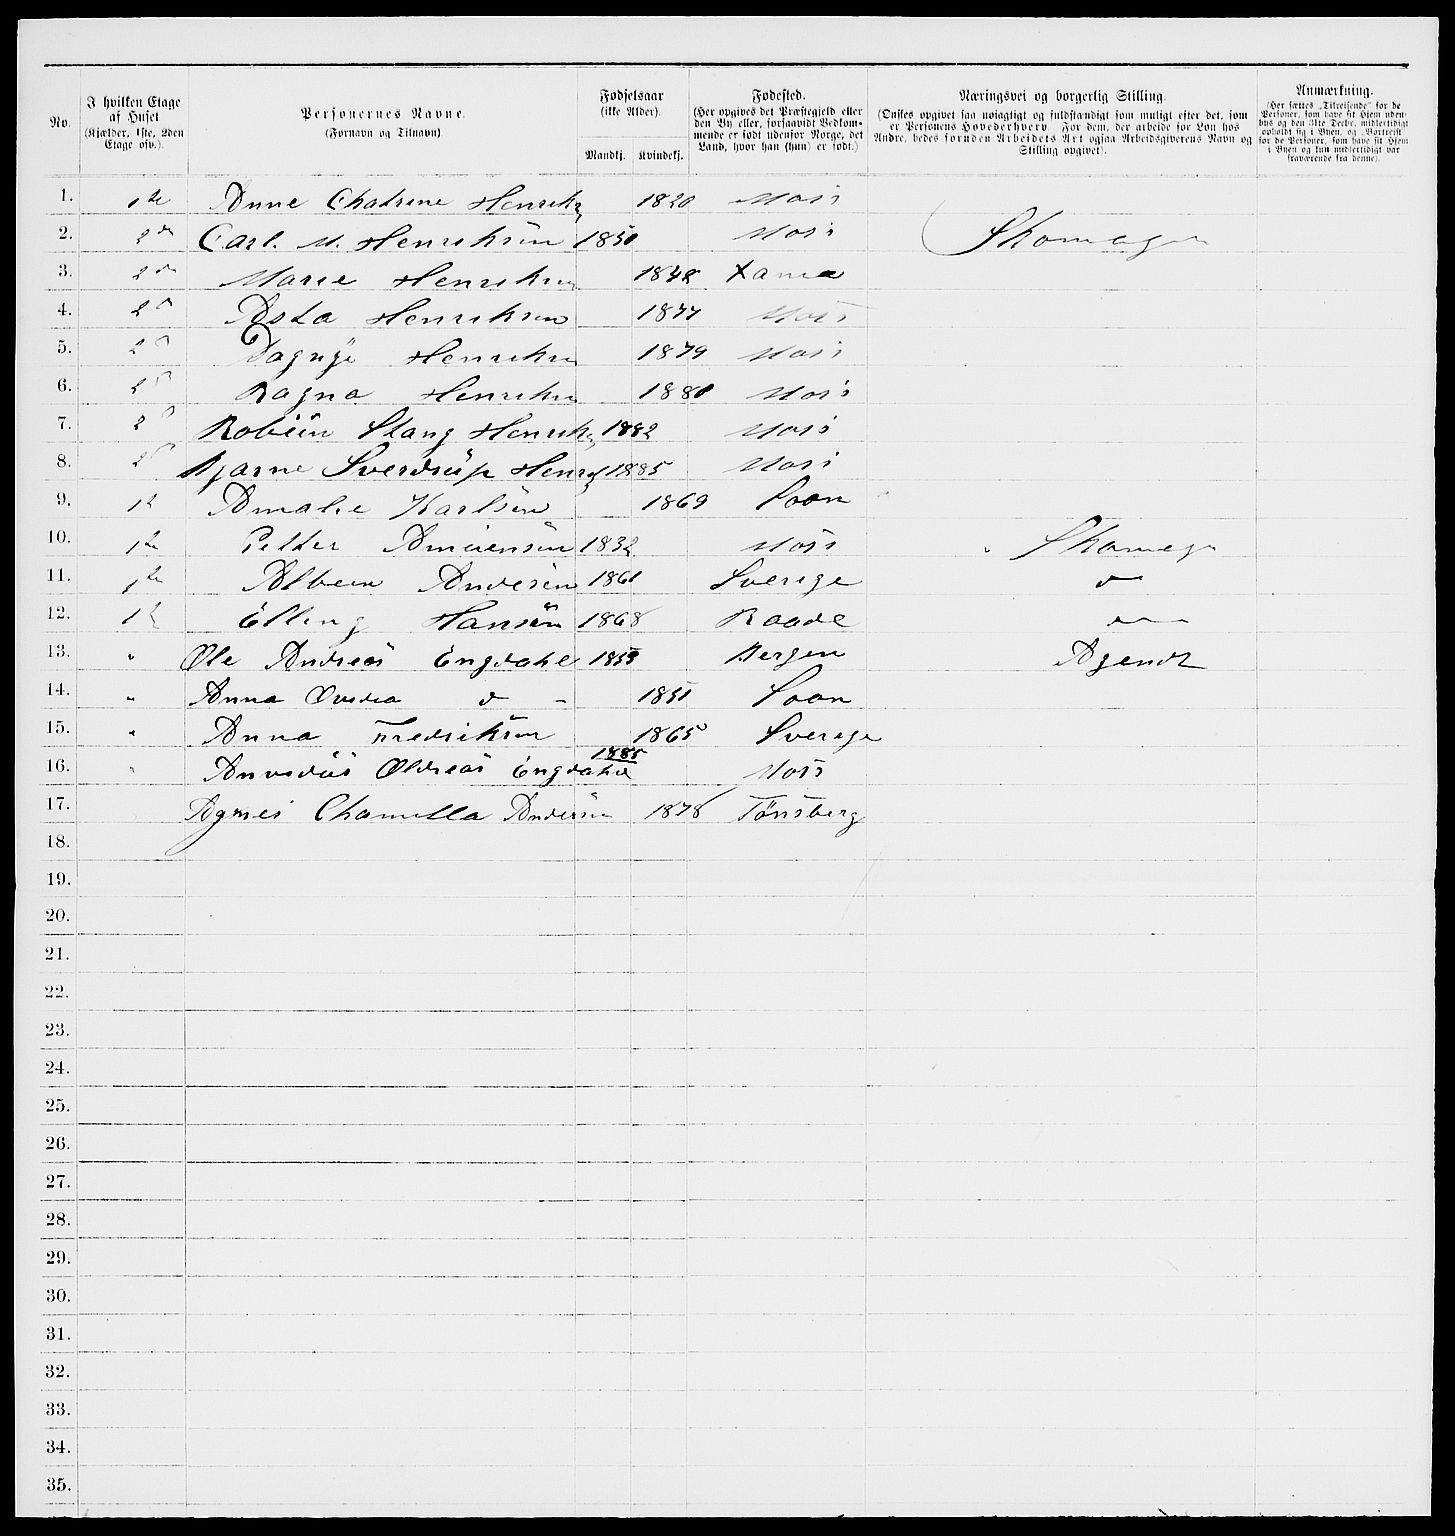 No. I hvilken Etage af Huset (Kjælder, 1ste, 2den Etage osv.). Personernes Navne. (Fornavn og Tilnavn) Fødselsaar (ikke Alder). Mandkj. Kvindekj. Fødested. (Her opgives det Præstegjeld eller den By eller, forsaavidt Vedkommende er født udenfor Norge, det Land, hvor han (hun) er født.) Næringsvei og borgerlig Stilling. (Ønskes opgivet saa nøiagtigt og fuldstændigt som muligt efter det, som er Personens Hovederhverv. For dem, der arbeide for Løn hos Andre, bedes foruden Arbeidets Art ogsaa Arbeidsgiverens Navn og Stilling opgivet). Anmærkning. (Her sættes „Tilreisende" for de Personer, som have sit Hjem udenbys og den 31te Decbr. midlertidigt opholdt sig i Byen, og „Bortreist" for de Personer, som have sit Hjem i Byen og kun midlertidigt var fraværende fra denne).
1. 1te Anne Chatrine Henriks 1820 Moss
2. 2den Carl. M. Henriksen 1850 Moss Skomager
3. 2den Marie Henriksen 1848
4. 2d Asta Henriksen 1877 Moss
5. 2d Dagnÿe Henriksen 1879 Moss
6. 2d Ragna Henriksen 1880 Moss
7. 2d Stang Henriks 1882 Moss
8. 2d Bjarne Sverdrup Henrs 1885 Moss
9. 1te Amalie Karlsen 1869 Soon
10. 1te Petter 1832 Moss Skomager
11. 1te Andersen 1861 Sverige do
12. 1te Elling Hansen 1868 Raade
13. " Ole Andreas Engdahl Bergen Agendt
14. " Anna do - 1851 Soon
15. " Anna Fredriksen 1865 Sverige
16. " Engdahl 1885 Moss
17. Agnes Chamilla Andersen 1878 Tönsberg
18.
19.
20.
21.
22.
23.
24.
25.
26.
27.
28.
29.
30.
31.
32.
33.
34.
35.